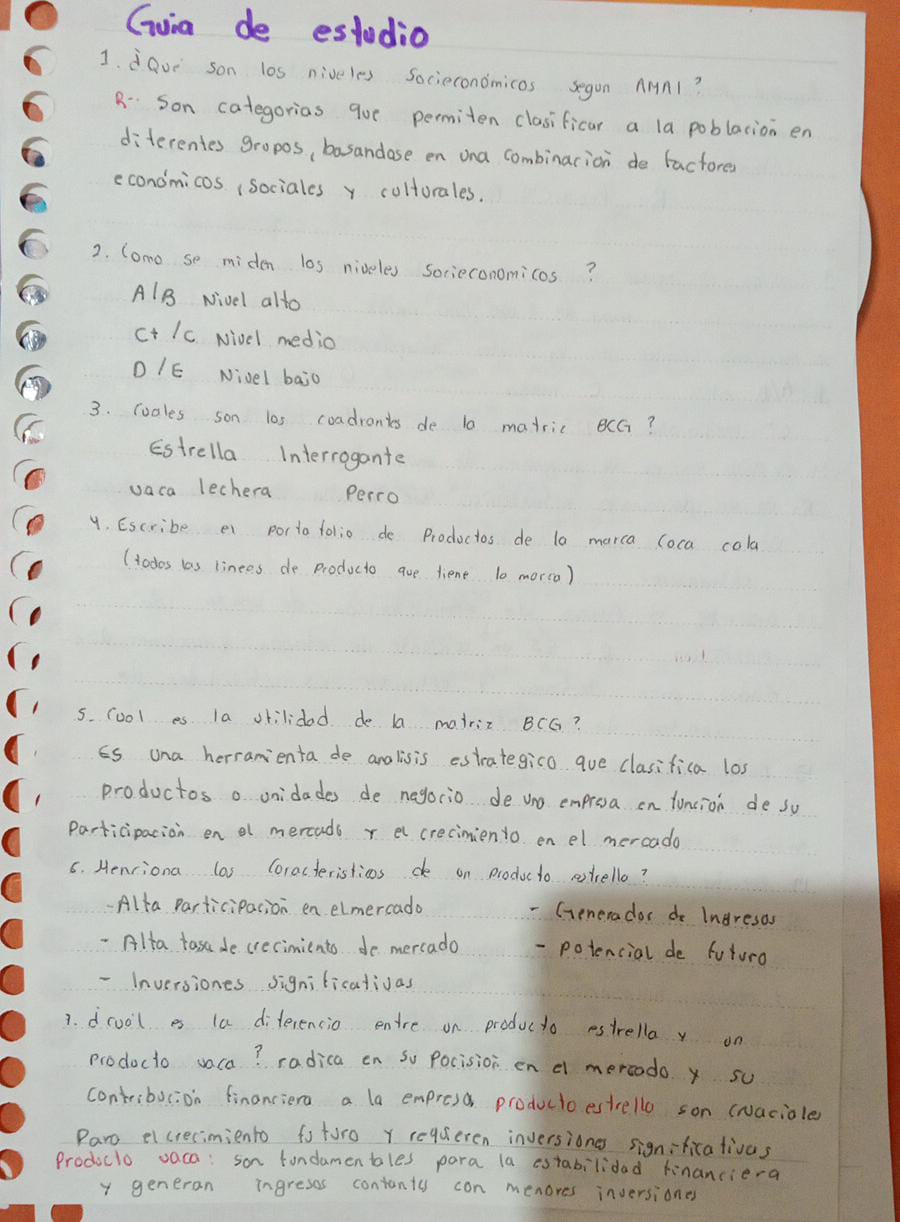 Guia de estudio
1. ¿Que son los niveles socieconómicos segun AMAI?
R- Son categorias que permiten clasificar a la población en
diferentes grupos, basandose en una combinación de factores
económicos, sociales y culturales.
2. Como se miden los niveles socieconomicos?
A/B Nivel alto
C+ /C Nivel medio
D/E Nivel bajo
3. Cuales son los cuadrantes de la matric BCG?
Estrella Interrogante
vaca lechera Perro
4. Escribe el portafolio de Productos de la marca Coca cola
(todos las lineas de Producto que tiene la marca)
5. Cual es la utilidad de la matriz BCG?
Es una herramienta de analisis estrategico que clasifica los
productos o unidades de negocio de una empresa en función de su
Participación en el mercado y el crecimiento en el mercado
6. Menciona las Caracteristicas de un Producto estrella?
- Alta Participación en el mercado - Generador de Ingresos
- Alta tasa de crecimiento de mercado - potencial de futuro
- Inversiones significativas
7. ¿cuál es la diferencia entre un producto estrella y un
Producto vaca? radica en su Pocision en el mercado y su
contribución financiera a la empresa producto estrella son cruaciales
Para el crecimiento futuro y requieren inversiones significativas
Producto vaca: son fundamentales para la estabilidad financiera
y generan ingresos contantes con menores inversiones